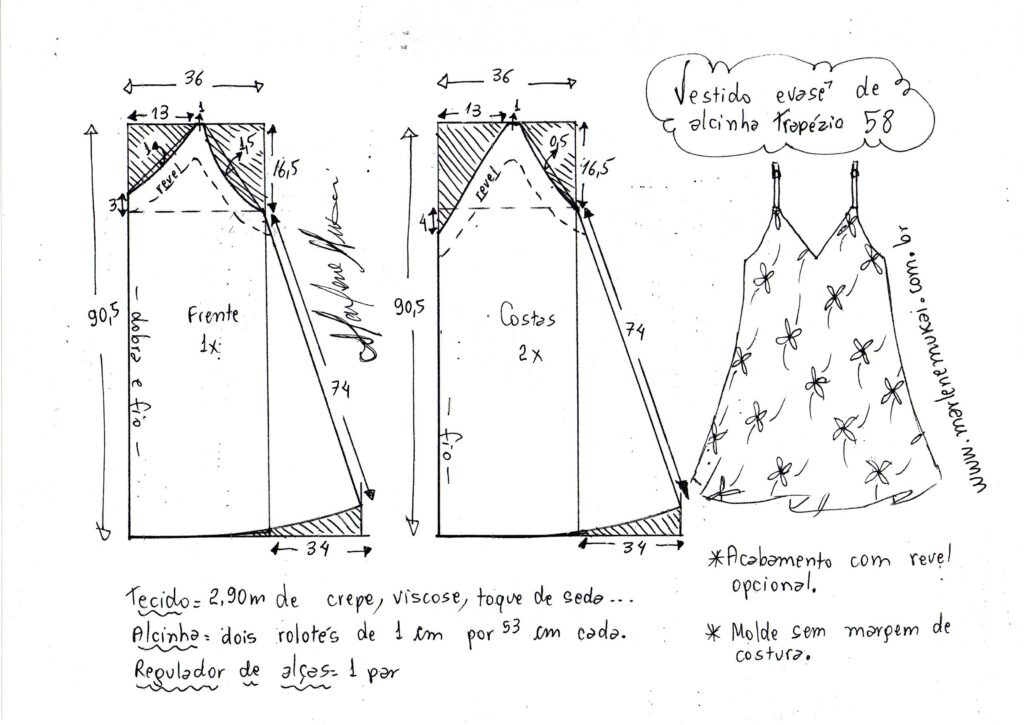 Vestido evasê de
alcinha trapézio 58
36
13
1
3
16,5
1,5
revel
90,5
Frente
1x
dobra e fio
74
34
36
13
1
0,5
16,5
4
revel
90,5
Costas
2x
fio
74
34
www.marlenemukai.com.br
Tecido= 2,90m de crepe, viscose, toque de seda...
Alcinha= dois rolotés de 1 cm por 53 cm cada.
Regulador de alças= 1 par
*Acabamento com revel
opcional.
* Molde sem margem de
costura.